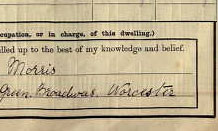 ccupation, or in charge, of this dwelling.)
illed up to the best of my knowledge and belief.
Morris
Green, Broadwas, Worcester